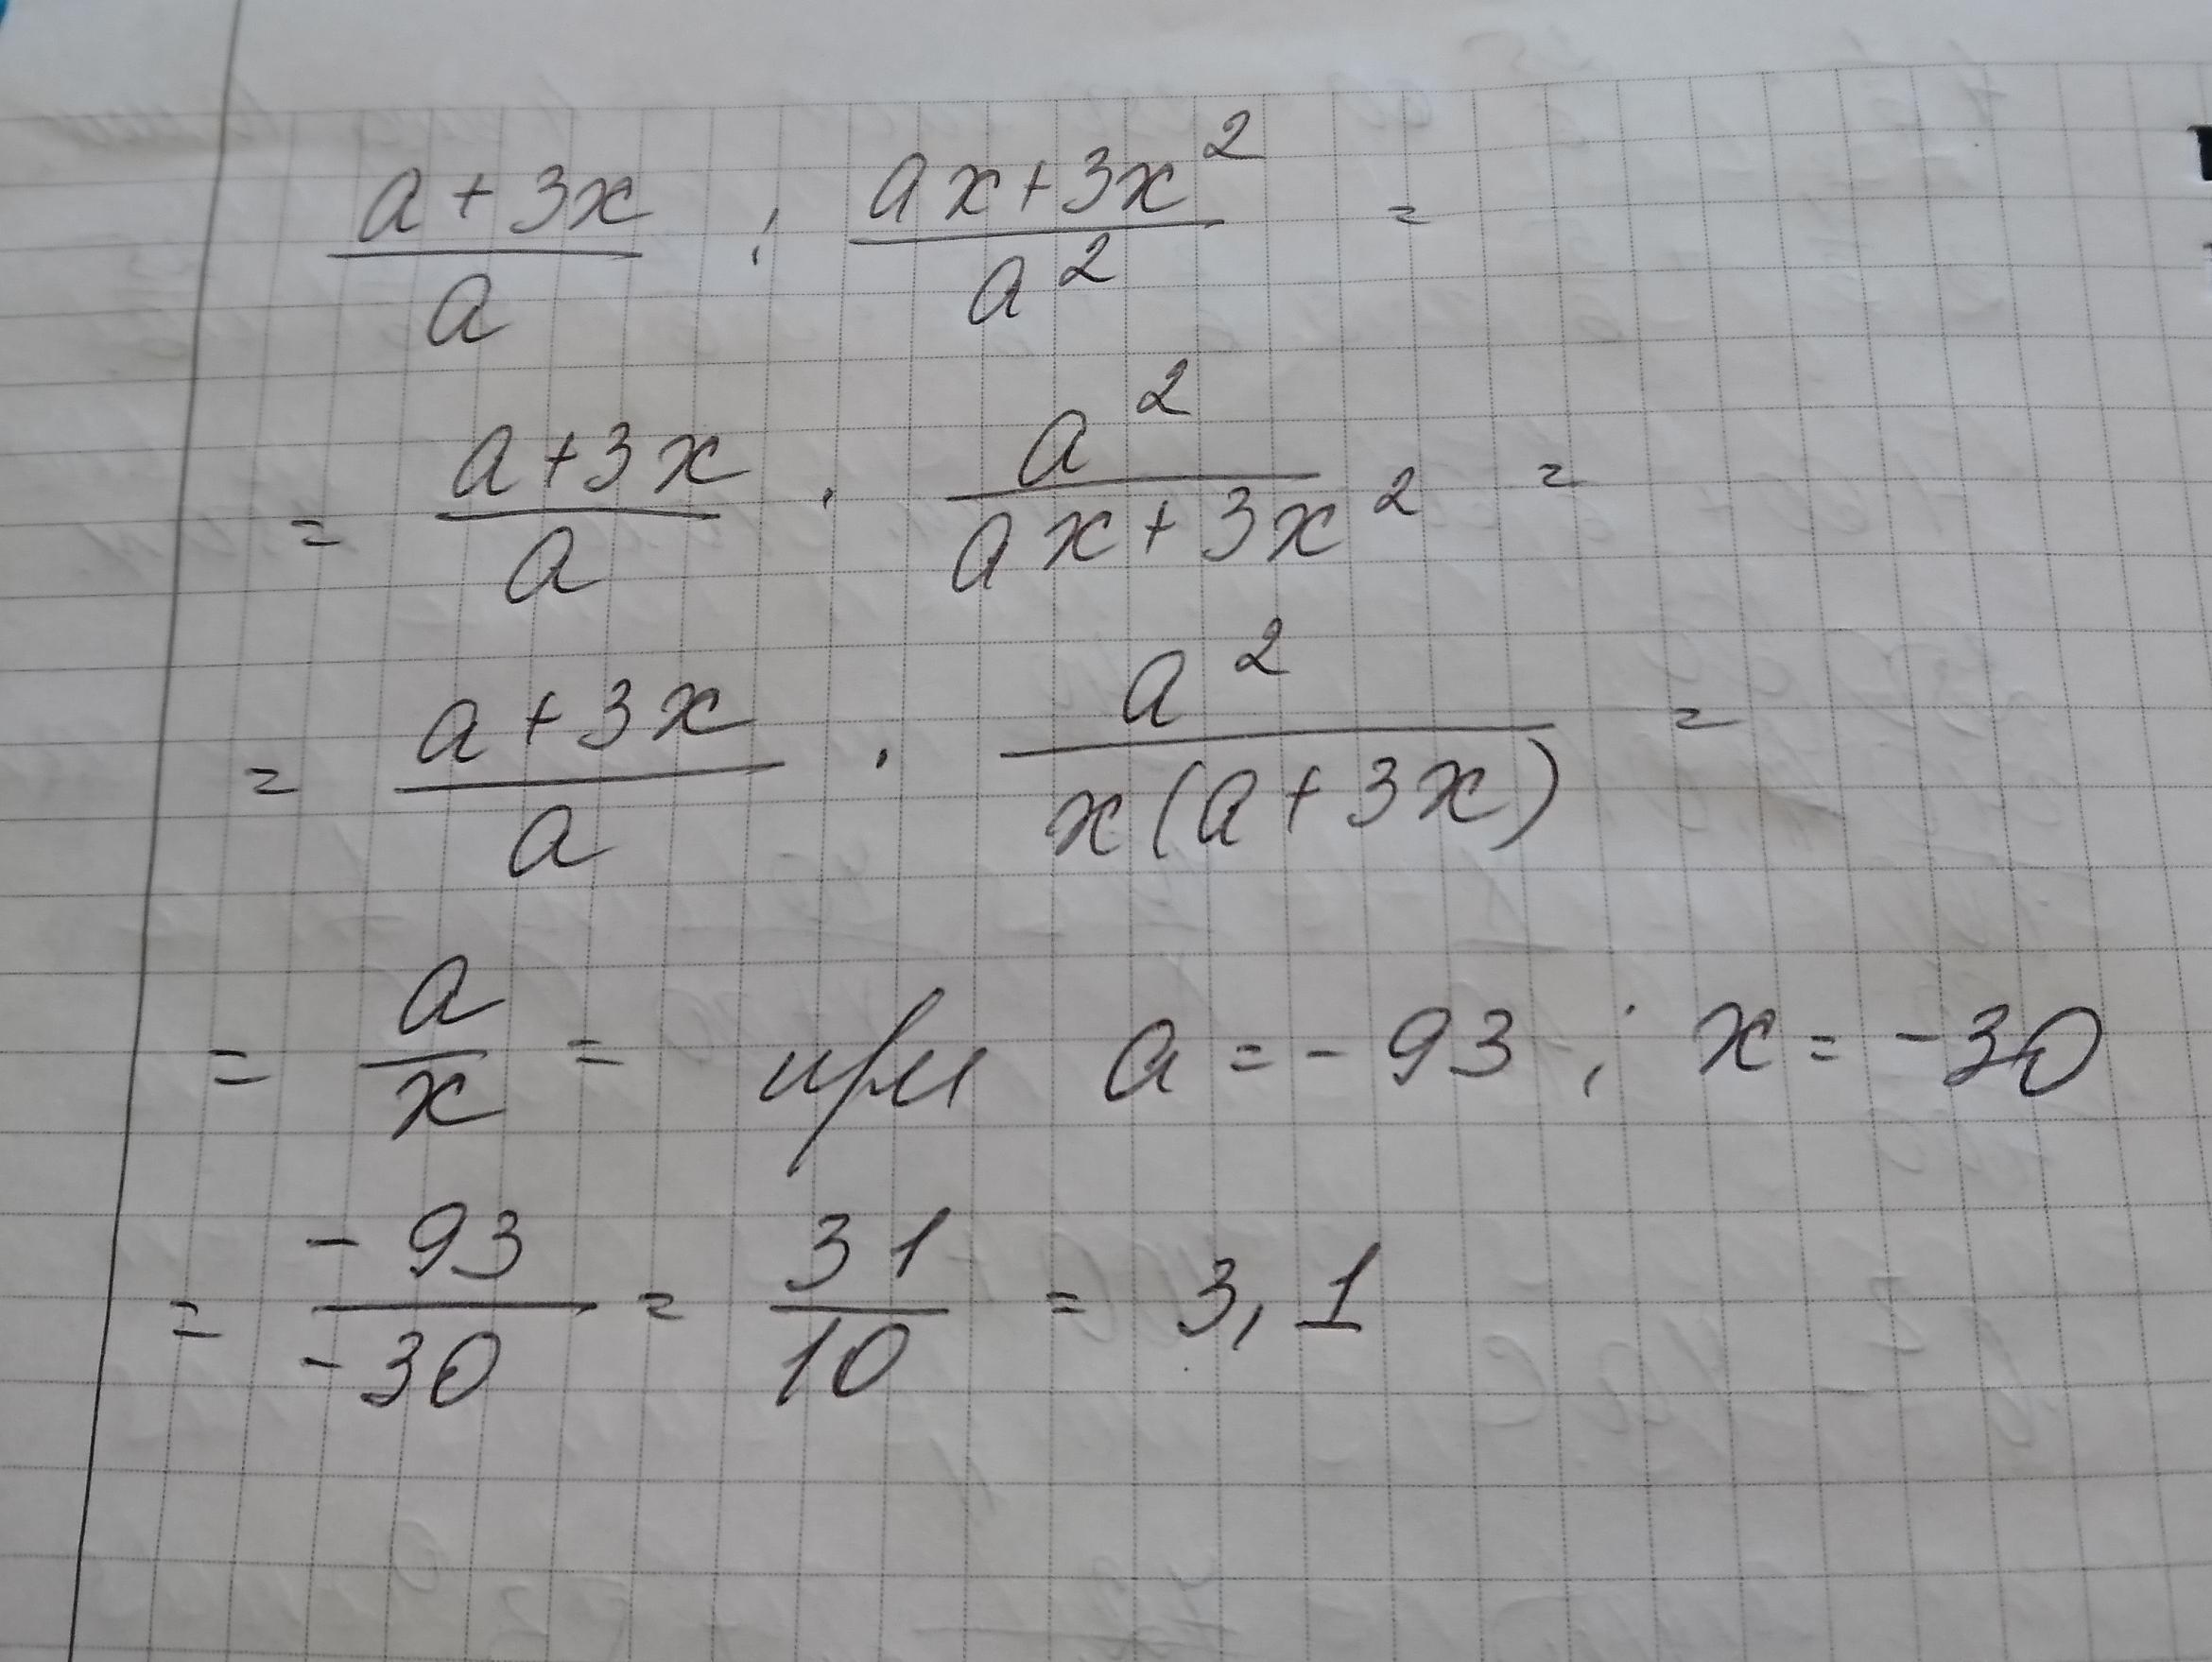 (a+3x)/a : (ax+3x²)/a² =
= (a+3x)/a · a²/(ax+3x²) =
= (a+3x)/a · a²/(x(a+3x)) =
= a/x = при a=-93; x=-30
= -93/-30 = 31/10 = 3,1